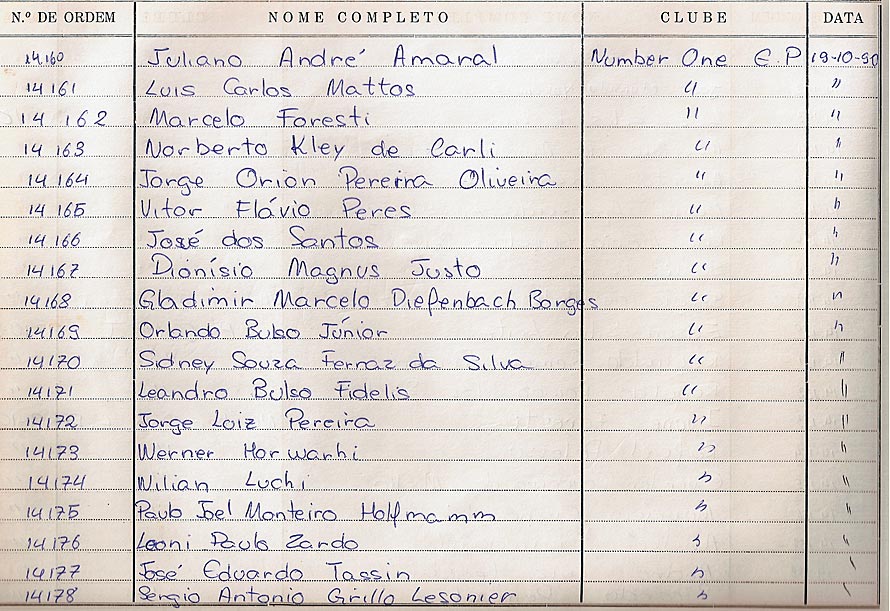 N.º DE ORDEM NOME COMPLETO CLUBE DATA
14160 Juliano André Amaral Number One E.P 19-10-90
14161 Luis Carlos Mattos " "
14 162 Marcelo Foresti " "
14 163 Norberto Kley de Carli " "
14164 Jorge Orion Pereira Oliveira " "
14165 Vitor Flávio Peres " "
14166 José dos Santos " "
14167 Dionísio Magnus Justo " "
14168 Gladimir Marcelo Diefenbach Borges " "
14169 Orlando Bulso Júnior " "
14170 Sidney Souza Ferraz da Silva " "
14171 Leandro Bulso Fidelis " "
14172 Jorge Loiz Pereira " "
14173 Werner Horwarhi " "
14174 Wilian Luchi " "
14175 Paulo Joel Monteiro Holfmamm " "
14176 Leoni Paulo Zardo " "
14177 José Eduardo Tassin " "
14178 Sergio Antonio Grillo Lesonier " "